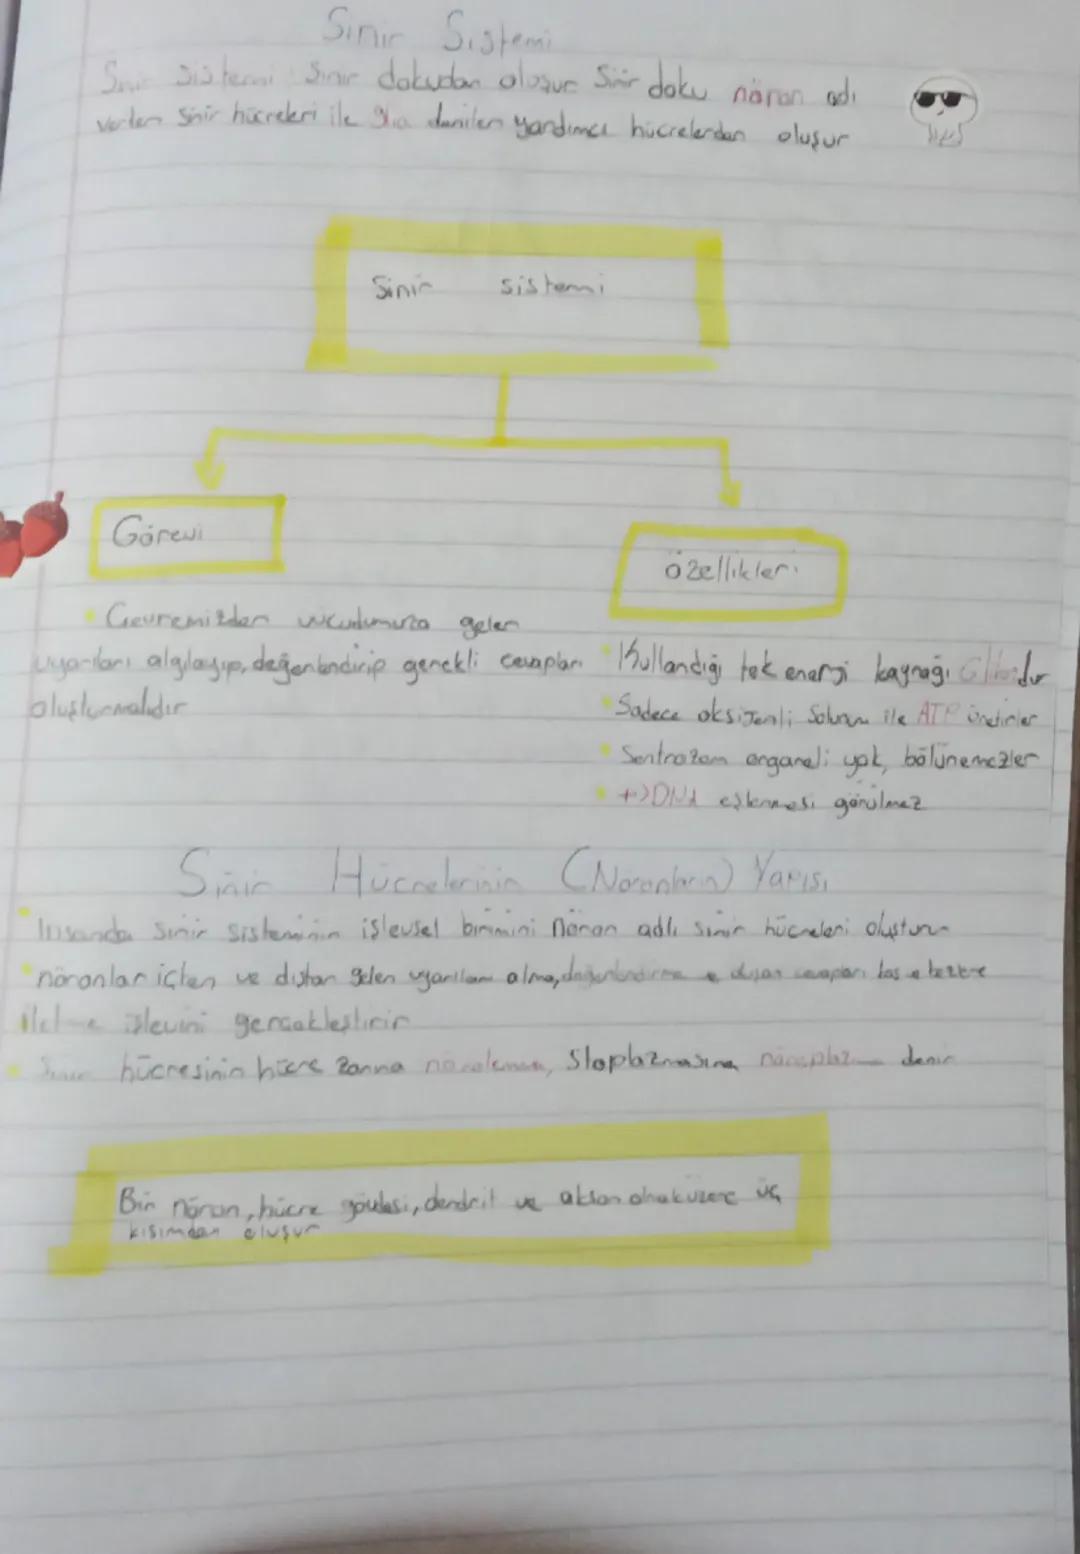 Sinir Sistemi
Sinir sistemi Sinir dokudan oluşur Sinir doku nöron adı
verilen Sinir hücreleri ile glia denilen yardımcı hücrelerden oluşur
Sinir sistemi
Görevi
özellikleri
Çevremizden vücudumuza gelen
uyarıları algılayıp, değerlendirip gerekli cevapları
oluşturmalıdır
Kullandığı tek enerji kaynağı
Sadece oksijenli Solunum ile ATP üretirler
Sentrozom organeli yok, bölünemezler
+) DNA eşlenmesi görülmez
Sinir Hücrelerinin (Nöronların) Yapısı
İnsanda sinir sisteminin işlevsel birimini nöron adlı sinir hücreleri oluşturur
nöronlar içten ve dıştan gelen uyarıları alma, değerlendirme e oluşan cevapları kas e bezlere
iletme işlevini gerçekleştirir
Sinir hücresinin hücre zarına nörolemma, Stoplazmasına nöroplazma denir
Bir nöron, hücre gövdesi, dendrit ve akson olmak üzere üç
kısımdan oluşur